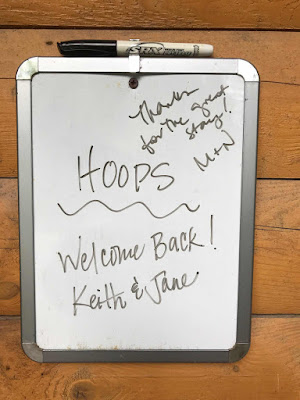 Thanks
for the great
stay!
M+N
HOOPS
Welcome Back!
Keith & Jane